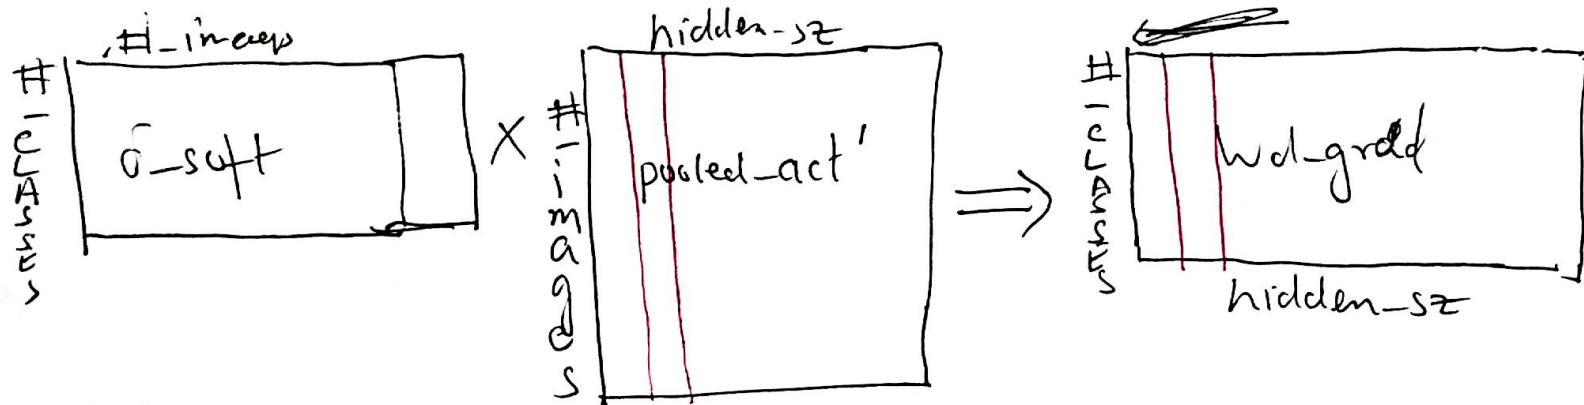 #_images
#_CLASSES
δ_soft
X
hidden-sz
#_images
pooled_act'
⇒
#_CLASSES
Wd_grad
hidden_sz